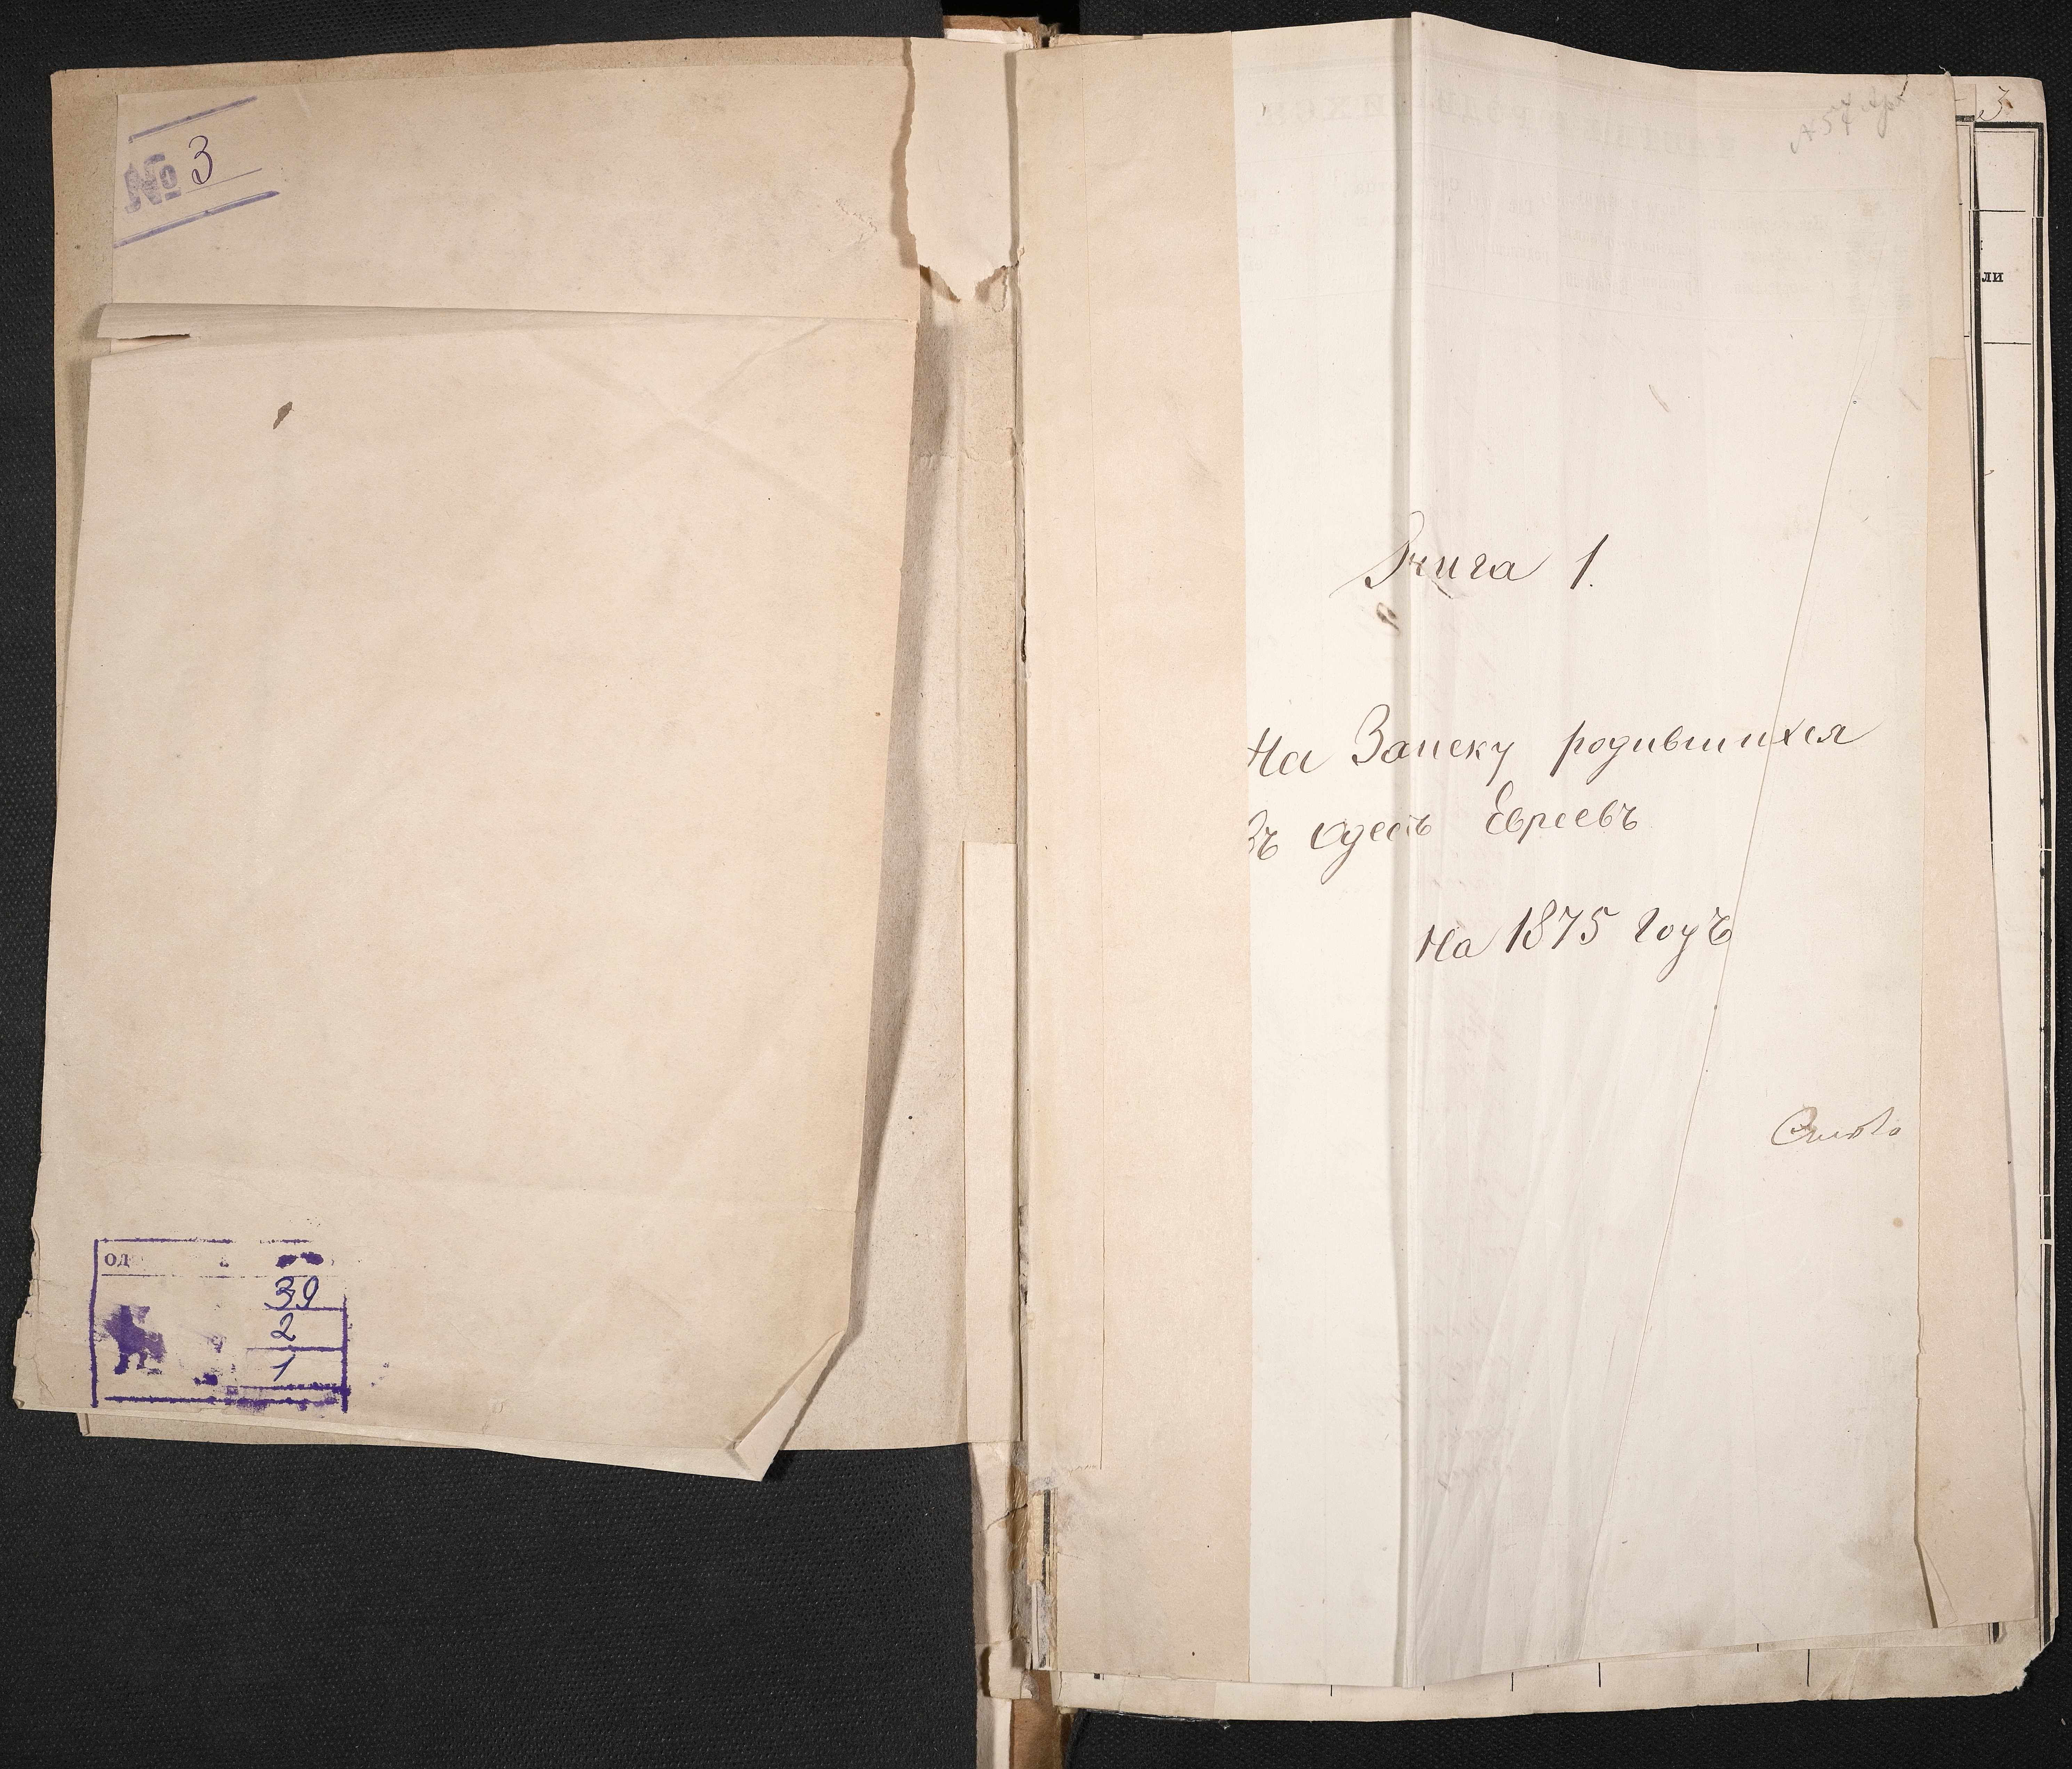 № 3
од
39
2
1
3
ли
Книга 1.
На Записку родившихся
Въ Одессѣ Евреевъ
на 1875 годъ